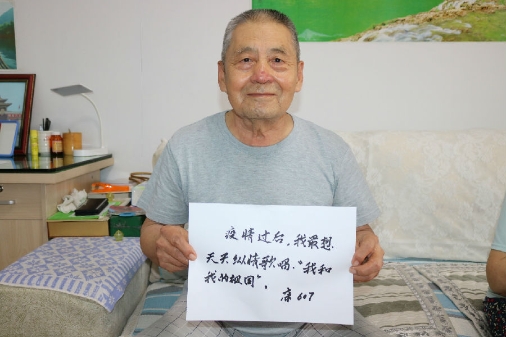 疫情过后,我最想
天天纵情歌唱“我和
我的祖国”。
京607